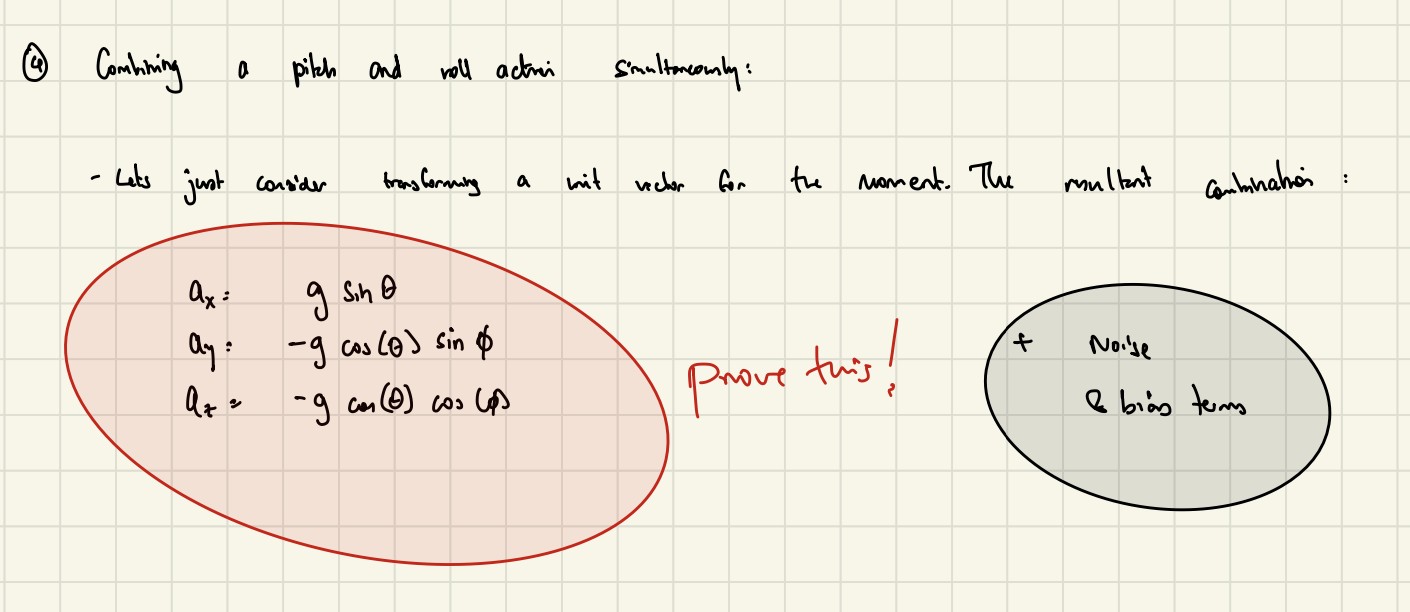 ④ Combining a pitch and roll action simultaneously:
- Lets just consider transforming a unit vector for the moment. The resultant combination :
aₓ = g sin θ
a_y = -g cos(θ) sin ϕ
a_z = -g cos(θ) cos (ϕ)
prove this!
+ Noise
& bias terms